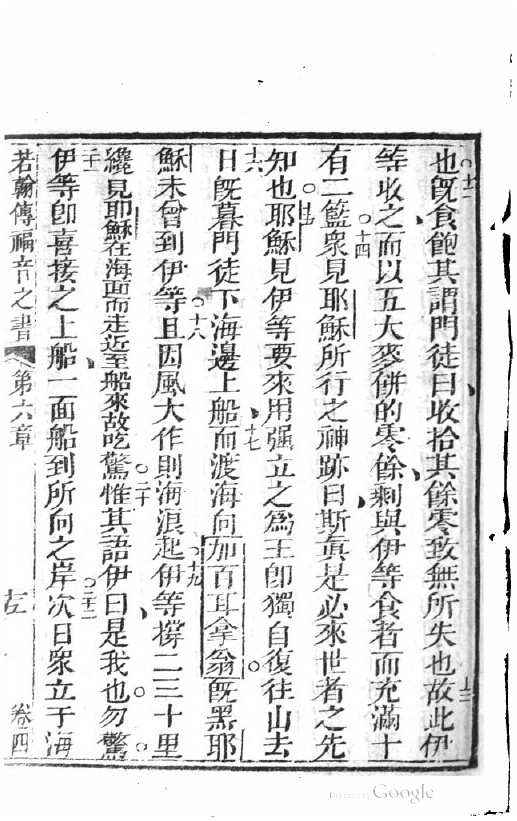 也○十二既食飽其謂門徒曰收拾其餘零致無所失也故此伊
等收之而以五大麥餅的零餘剩與伊等食者而充滿十
有二籃○十四衆見耶穌所行之神跡曰斯眞是必來世者之先
知也○十五耶穌見伊等要來用强立之爲王卽獨自復往山去
十六日旣暮門徒下海邊上船○十七而渡海向加百耳拿翁○旣黑耶
穌未曾到伊等○十八且因風大作則海浪起○十九伊等撐二三十里
纔見耶穌在海面而走近至船來故吃驚○二十惟其語伊曰是我也○勿驚○
伊等卽喜接之上船一面船到所向之岸○二十二次日衆立于海
若翰傳福音之書 第六章 左 卷四
Digitized by Google